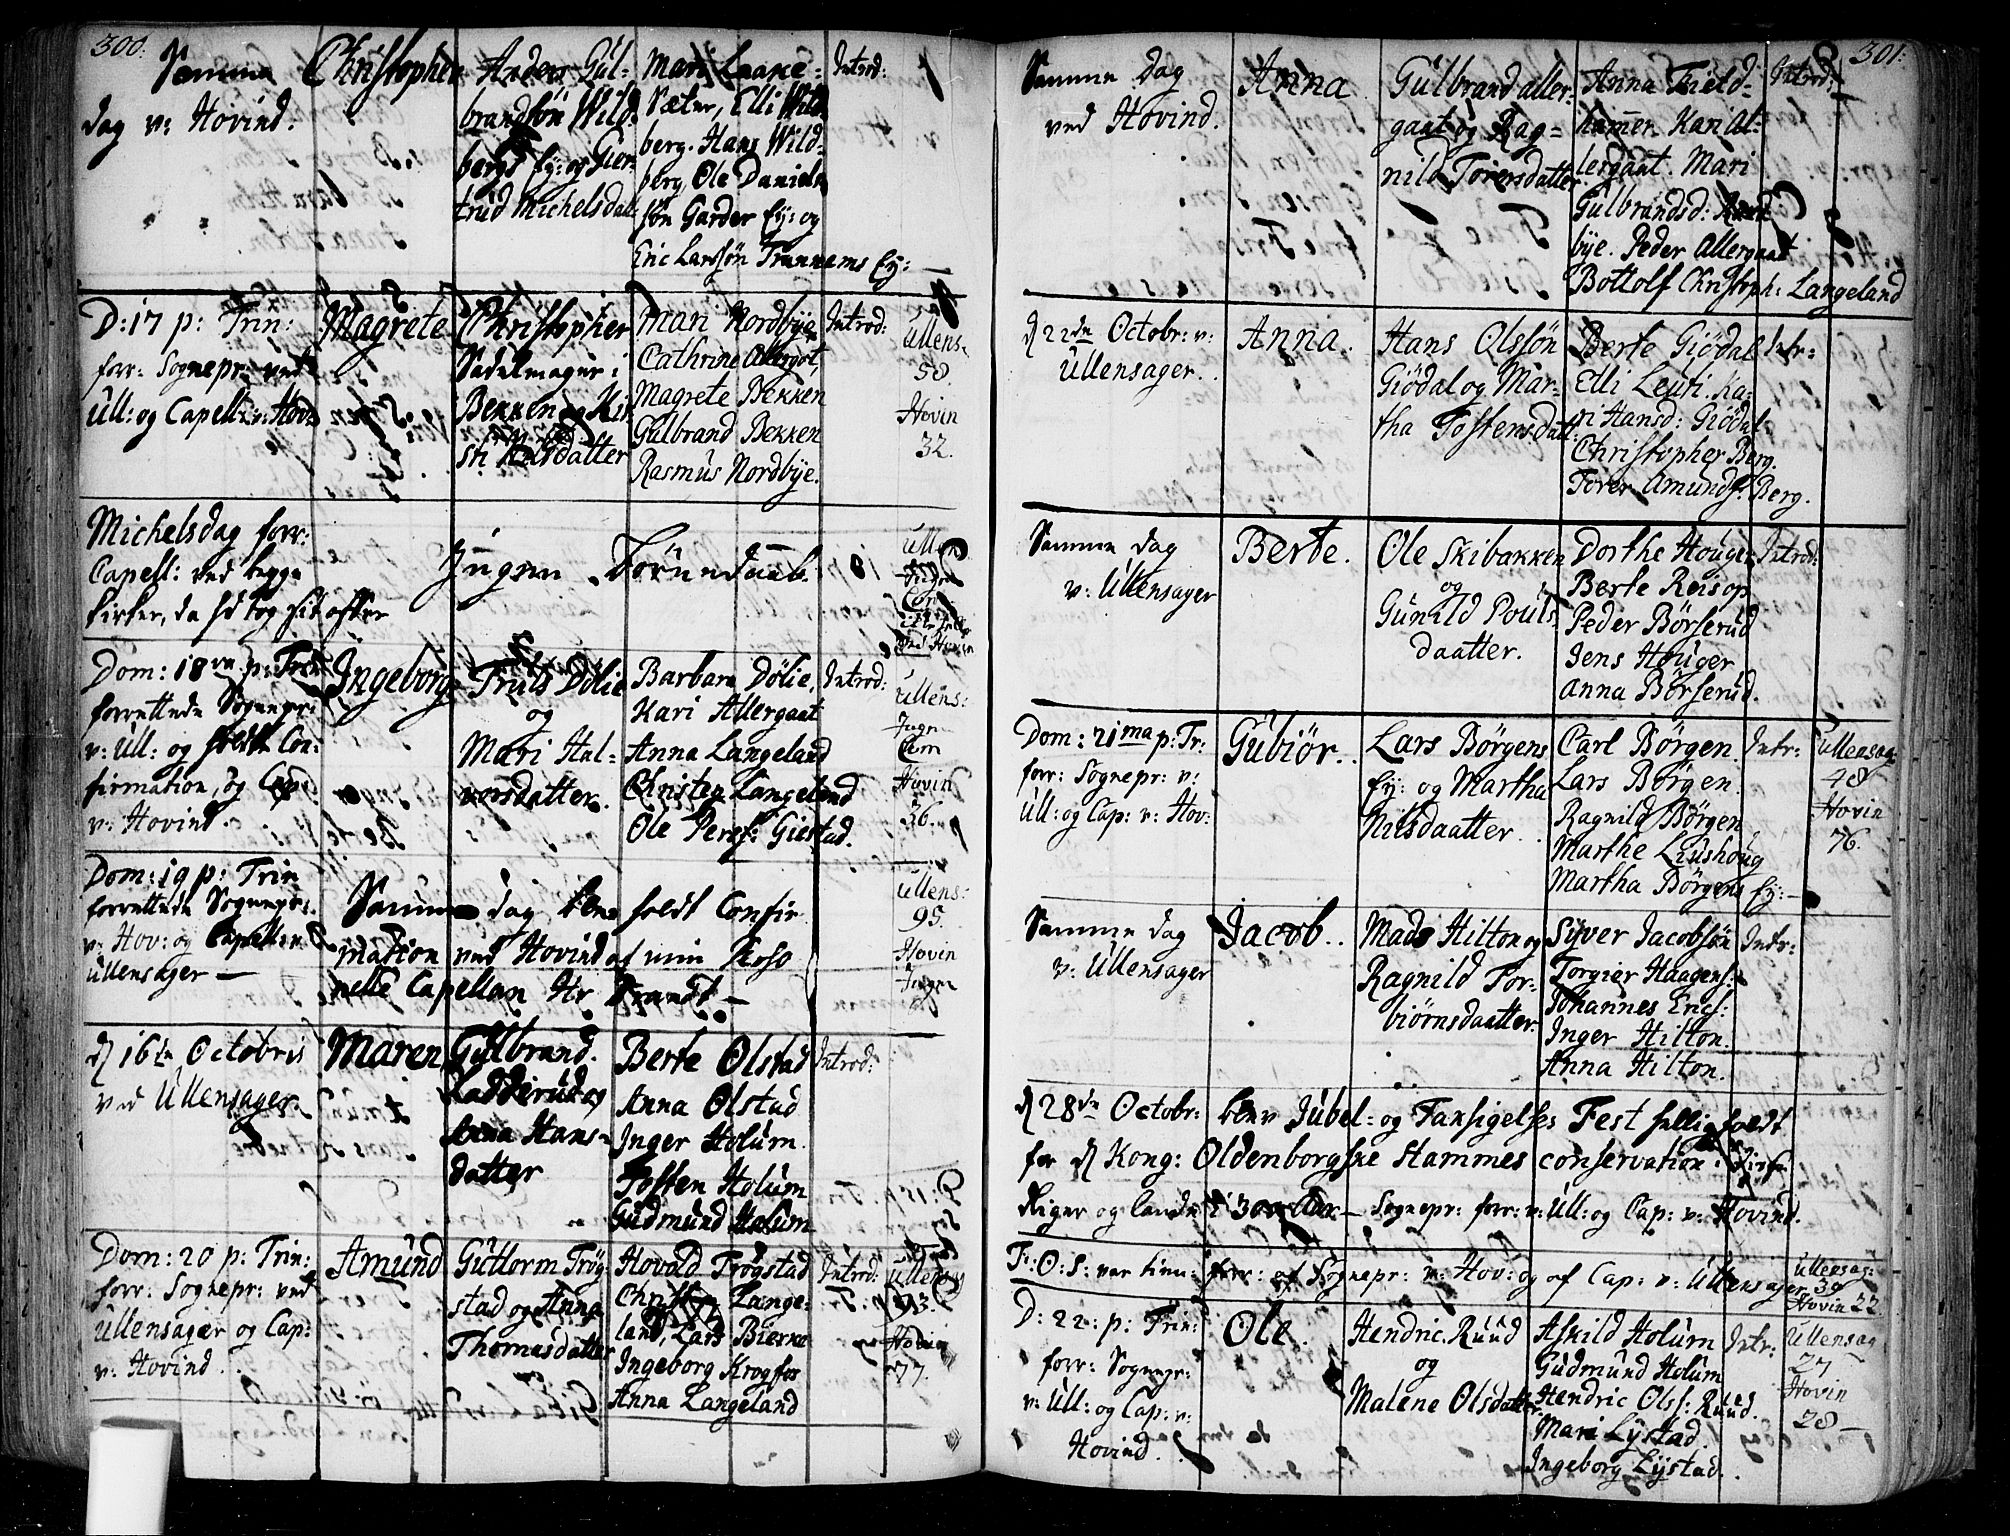 300.
Samme
dag v: Hovind.
Christopher
Anders Gül-
brandsøn Wild-
bergs Ey: og Gier-
trüd Michelsdat:
Mari Laake-
Sæter, Elli Wild-
berg. Hans Wild-
berg, Ole Daniels
søn Garder Ey: og
Eric Larssøn Trannems Ey:
Introd:
D: 17 p: Trin:
forr: Sognepr: ved
Ull: og Capell: v: Hov:
Magrete
Christopher
Sadelmager i
Bekken og Kir
sti Nilsdatter
Mari Nordbÿe,
Cathrine Allergot,
Magrete Bekken
Gülbrand Bekken
Rasmüs Nordbÿe.
Introd:
Ullens:
58.
Hovin
32.
Michelsdag forr:
Capell: ved begge
kirker, da
offer
Ingen
Ullen
Ingen
Com
ved Hovin
Dom: 18 p: Trin
forrettede Sognepr:
v: Ull: og holdt Con-
firmation, og Cap
v: Hovind.
Ingeborg
Trüls Dølie
og
Mari Hal-
vorsdatter.
Barbara Dølie,
Kari Allergaat
Anna Langeland
Christen Langeland
Ole Pers: Giestad.
Introd:
Ullens:
Ingen
Com
Hovin
36.
Dom: 19 p: Trin
forrettede Sognepr:
v: Hov: og Capellan
Ullensager —
Samme dag blev holdt Confir
mation ved Hovind af min Perso
nelle Capellan Hr Brandt —
Ullens:
95.
Hovin
Ingen
d 16de Octobris
ved Ullensager
Maren
Gülbrand
Ladderüd og
Hans-
datter
Berte Olstad
Anna Olstad
Inger Holüm
Tosten Holüm
Güdmünd Holüm
Introd:
Dom: 20 p: Trin:
forr: Sognepr: ved
Ullensager og Cap:
v: Hovind.
Amünd
Güttorm Trøg-
stad og Anna
Thomasdatter
Hovald Trøgstad
Christen Lange-
land, Lars Bierke
Ingeborg Krogfos
Anna Langeland
Introd:
Ullens
Hovin
77.
301.
Samme dag
ved Hovind.
Anna
Gülbrand aller-
gaat og Rag-
nild Torersdatter
Anna Field-
hammer. Kari Al-
lergaat. Mari
Gülbrandsd:
bÿe. Peder Allergaat
Bottolf Christoph: Langeland
Introd:
d 22de Octobr: v:
Ullensager.
Anna.
Hans Olssøn
Giødal og Mar-
tha Tostensdatt:
Berte Giødal
Elli Leüti. Ka-
ri Hansd: Giødal
Christopher Berg.
Torer Amunds: Berg.
Intr:
Samme dag
v: Ullensager
Berte.
Ole Skibakken
og
Günild Poüls
daatter.
Dorthe Hoüger
Berte Reisop
Peder Børserüd
Jens Hoüger
Anna Børserüd.
Introd:
Dom: 21ma p: Tr:
forr: Sognepr: v:
Ull: og Cap: v: Hov:
Gübiør.
Lars Børgens
Ey: og Martha
Nilsdaatter
Carl Børgen.
Lars Børgen.
Ragnild Børgen
Marthe Liüshoüg
Martha Børgens Ey:
Intr:
Ullensag:
48
Hovin
76.
Samme dag
v: Ullensager
Jacob.
Mads Hilton og
Ragnild Tor-
biørnsdaatter.
Siver Jacobsøn
Torgier Haagens:
Johannes Erics:
Inger Hilton.
Anna Hilton.
Intr:
d 28de Octobr: blev Jübel- og Taksigelses Fest hellig holdt
for d Kong: Oldenborgske Stammes conservation i
Riger og lande i 300 Aar — Sognepr: forr: v: Ull: og Cap: v: Hovind.
F: O: S: var forr: af Sognepr: v: Hov: og af Cap: v: Ullensager
Ullensag:
39
Hovin 22.
D: 22: p: Trin:
forr: Sognepr:
v: Ull: og Cap: v:
Hovind.
Ole.
Hendric. Rüüd
og
Malene Olsdatter
Askild Holüm
Güdmünd Holüm
Hendric Ols: Rüüd.
Mari Lÿstad
Ingeborg Lÿstad.
Intr:
Ullensag
27
Hovin
28 —